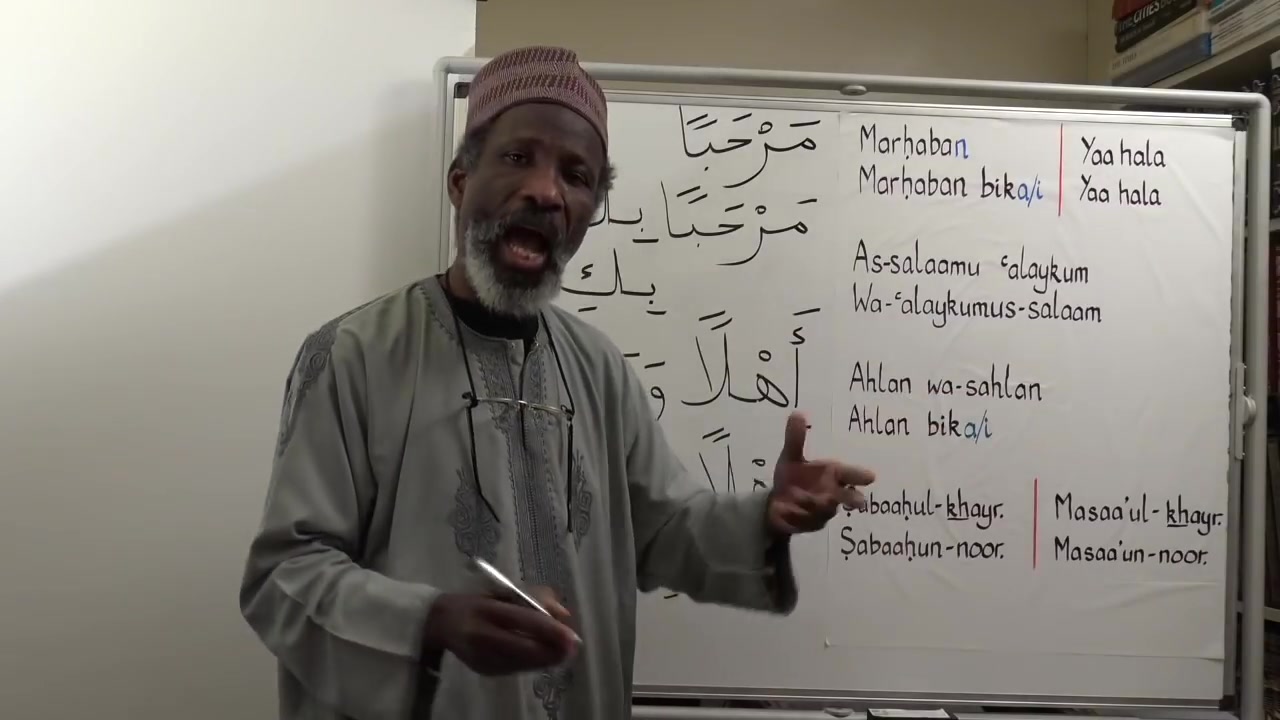 THE CITIES
مَرْحَبًا
مَرْحَبًا
بِكِ
أَهْلًا وَ
Marḥaban
Marḥaban bika/i
Yaa hala
Yaa hala
As-salaamu ʿalaykum
Wa-ʿalaykumus-salaam
Ahlan wa-sahlan
Ahlan bika/i
Ṣabaaḥul-khayr.
Ṣabaaḥun-noor.
Masaa'ul-khayr.
Masaa'un-noor.